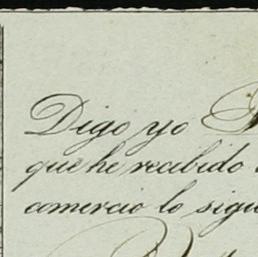 Digo yo
que he recibido
comercio lo sigu